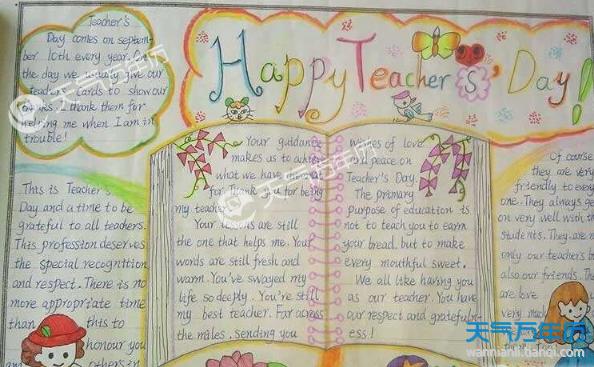 Teacher's
Day comes on septem-
ber 10th every year. On
the day we usually give our
teachers cards to show our
thanks. I thank them for
helping me when I am in
trouble!
Happy Teachers' Day!
This is Teacher's
Day and a time to be
grateful to all teachers.
This profession deserves
the special recognition
and respect. There is no
more appropriate time
than this to
honour you
am others in
Your guidance
makes us to
what we have
far. Thank you for being
my teacher.
Your lessons are still
the one that helps me. Your
words are still fresh and
warm. You've swayed my
life so deeply. You're still
my best teacher. Far across
the miles, sending you
wishes of love
and peace on
Teacher's Day.
The primary
purpose of education is
not to teach you to earn
your bread, but to make
every mouthful sweet.
We all like having you
as our teacher. You have
our respect and gratefuln-
ess!
Of course
they are very
friendly to every
one. They always get
on very well with th
students. They are n
only our teachers bu
also our friends. The
are love
very muc
天气万年历
wannianli.tianqi.com